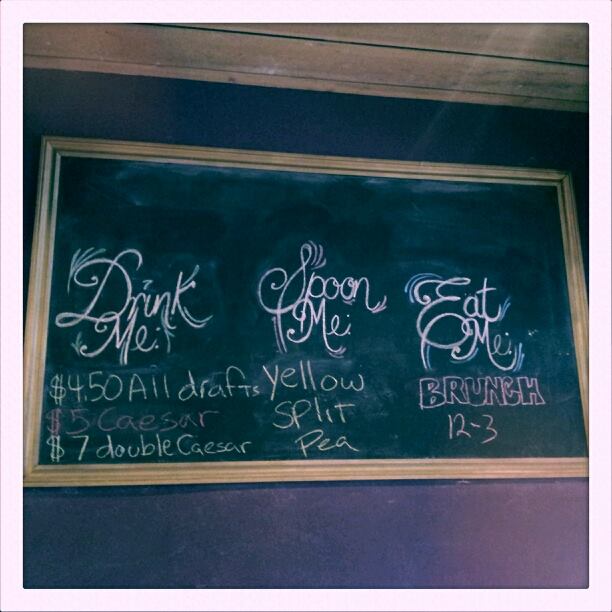 Drink
Me:
$4.50 All drafts
$5 Caesar
$7 double Caesar
Spoon
Me:
Yellow
Split
Pea
Eat
Me:
BRUNCH
12-3